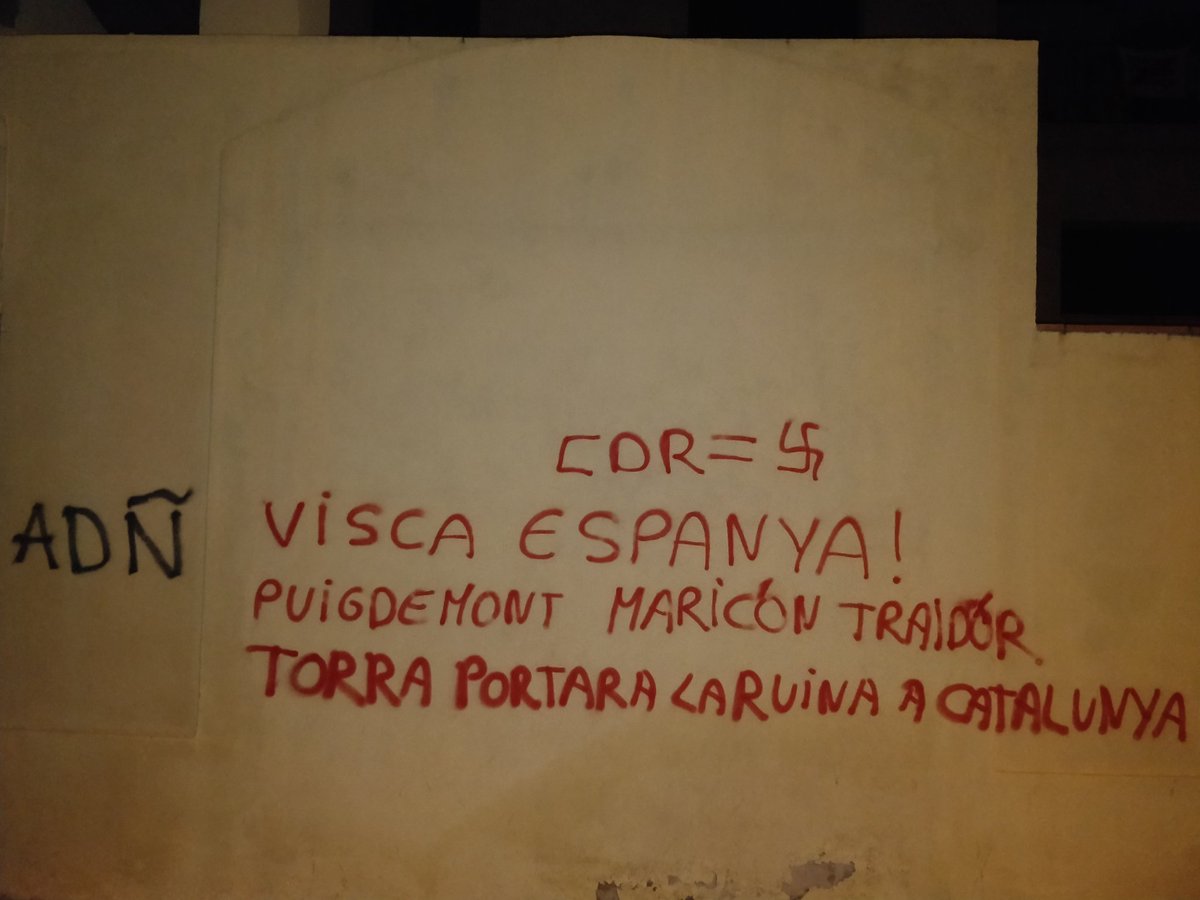 CDR = 卐
ADÑ
VISCA ESPANYA!
PUIGDEMONT MARICÓN TRAIDÓR.
TORRA PORTARA LA RUINA A CATALUNYA